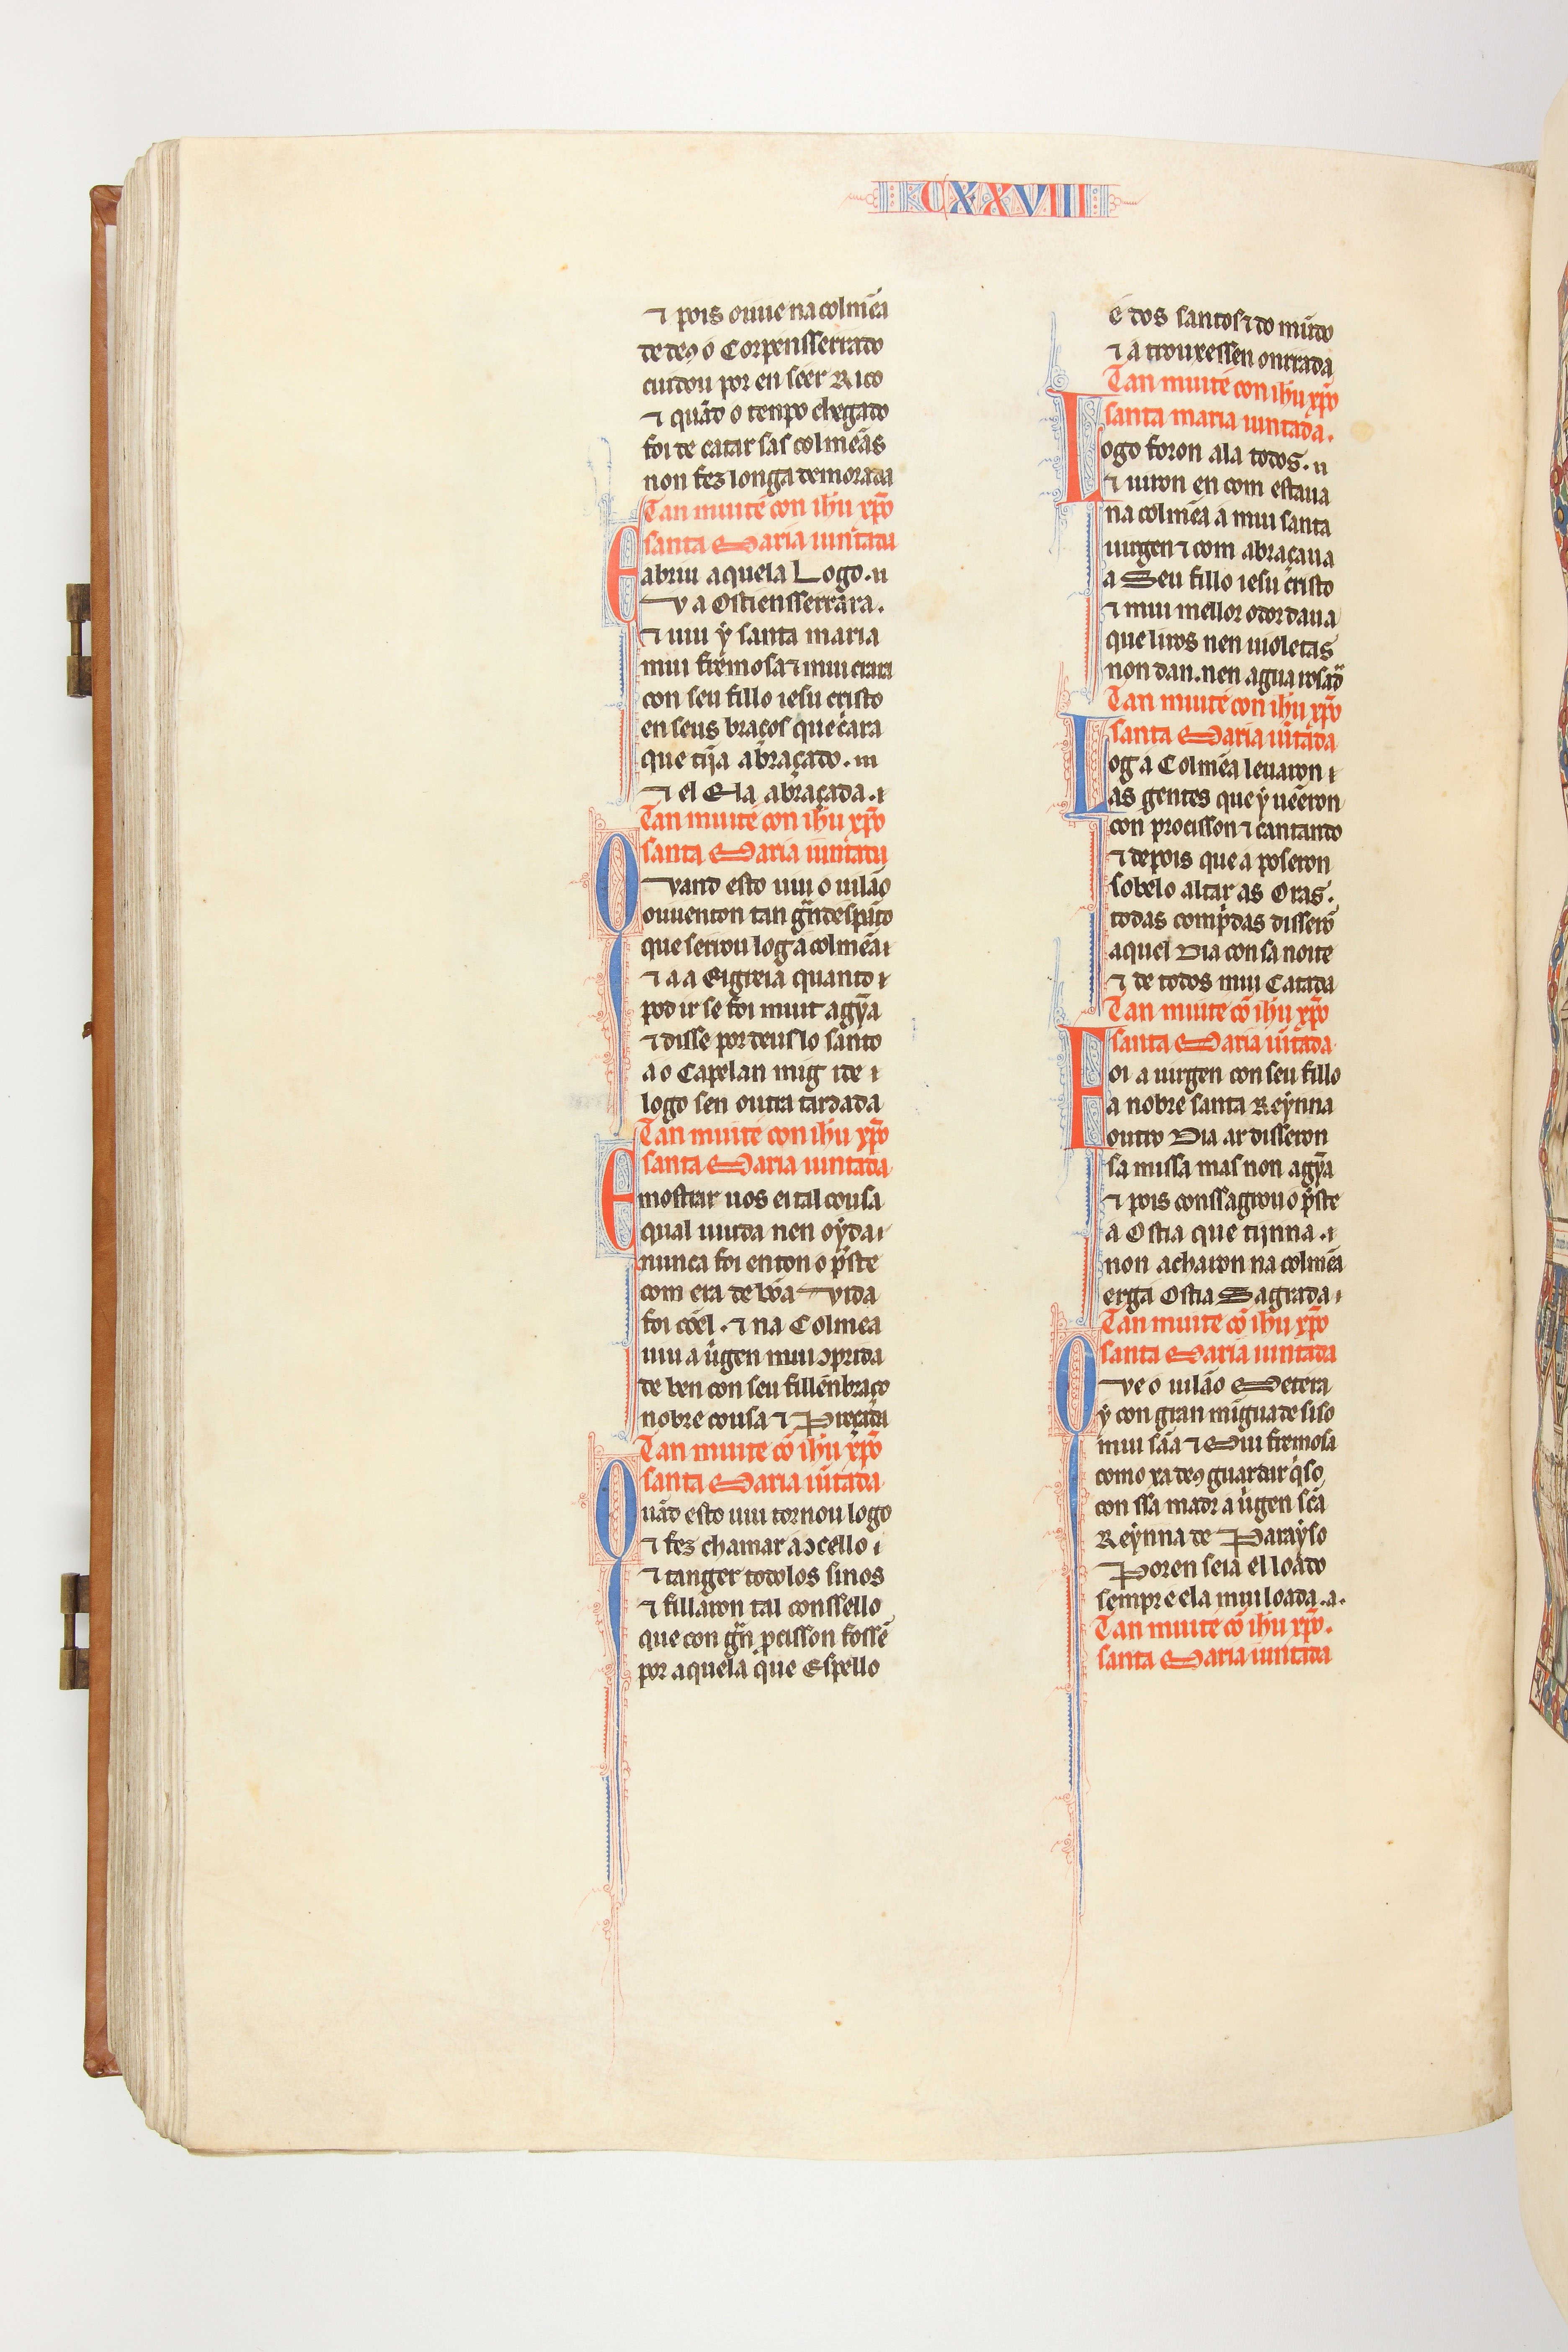 CXXVIII
⁊ pois ouue na colmẽa
de deꝰ o Corpensserrado
cuidou por en seer Rico
⁊ quãd o tenpo chegado
foi de catar sas colmẽas
non fez longa demorada
Tan muit é con ih̃u xp̃o
santa Maria iuntada
E abriu aquela Logo. u
v a Ostienssarrara.
⁊ uiu ẏ santa maria
mui fremosa ⁊ mui crara
con seu fillo iesu cristo
en seus braços que cara
que tĩja abraçado. m
⁊ el Ela abraçada.
Tan muit é con ih̃u xp̃o
santa Maria iuntada
Quand esto uiu o uilão
ouuenton tan grãd espãto
que serrou log a colmẽa
⁊ a a Eigreia quanto
pod ir se foi muit agỹa
⁊ disse por deus lo santo
ao Capelan mig ide
logo sen outra tardada
Tan muit é con ih̃u xp̃o
santa Maria iuntada
E mostrar uos ei tal cousa
qual uiuda nen oẏda
nunca foi enton o p̃ste
com era de bõa vida
foi cõel. ⁊ na Colmea
uiu a uirgen mui ↄprida
de ben con seu fillẽn braço
nobre cousa ⁊ Preçada
Tan muit é cõ ih̃u xp̃o
santa Maria iũtada
Quãd esto uiu tornou logo
⁊ fez chamar a ↄcello
⁊ tanger todolos sinos
⁊ fillaron tal conssello
que con grã p̃cisson fossẽ
por aquela que Espello
é dos santos ⁊ do mũdo
⁊ a trouxessen onrrada
Tan muit é con ih̃u xp̃o
santa maria iuntada.
Logo foron ala todos. u
⁊ uiron en com estaua
na colmẽa a mui santa
uirgen ⁊ com abraçaua
a Seu fillo iesu cristo
⁊ mui mellor odor daua
que lirios nen uioletas
non dan. nen agua rosad̃
Tan muit é con ih̃u xp̃o
santa Maria iũtada
Log a Colmẽa leuaron
as gentes que ẏ uẽeron
con procisson ⁊ cantando
⁊ depois que a poseron
sobelo altar as Oras.
todas comp̃das disserõ
aquel Dia con sa noite
⁊ de todos mui Catada
Tan muit é cõ ih̃u xp̃o
santa Maria iũtada
Foi a uirgen con seu fillo
a nobre santa Reẏnna
outro Dia ar disseron
sa missa mas non agỹa
⁊ pois conssagrou o p̃ste
a Ostia que tijnna.
non acharon na colmẽa
erga Ostia Sagrada
Tan muit é cõ ih̃u xp̃o
santa Maria iuntada
Que o uilão Metera
ẏ con gran mingua de siso
mui sãa ⁊ Mui fremosa
como xa deꝰ guardar q̃so
con ssa madr a uirgen sc̃a
Reẏnna de Paraẏso
Poren seia el loado
sempr e ela mui loada. a.
Tan muit é cõ ih̃u xp̃o.
santa Maria iuntada